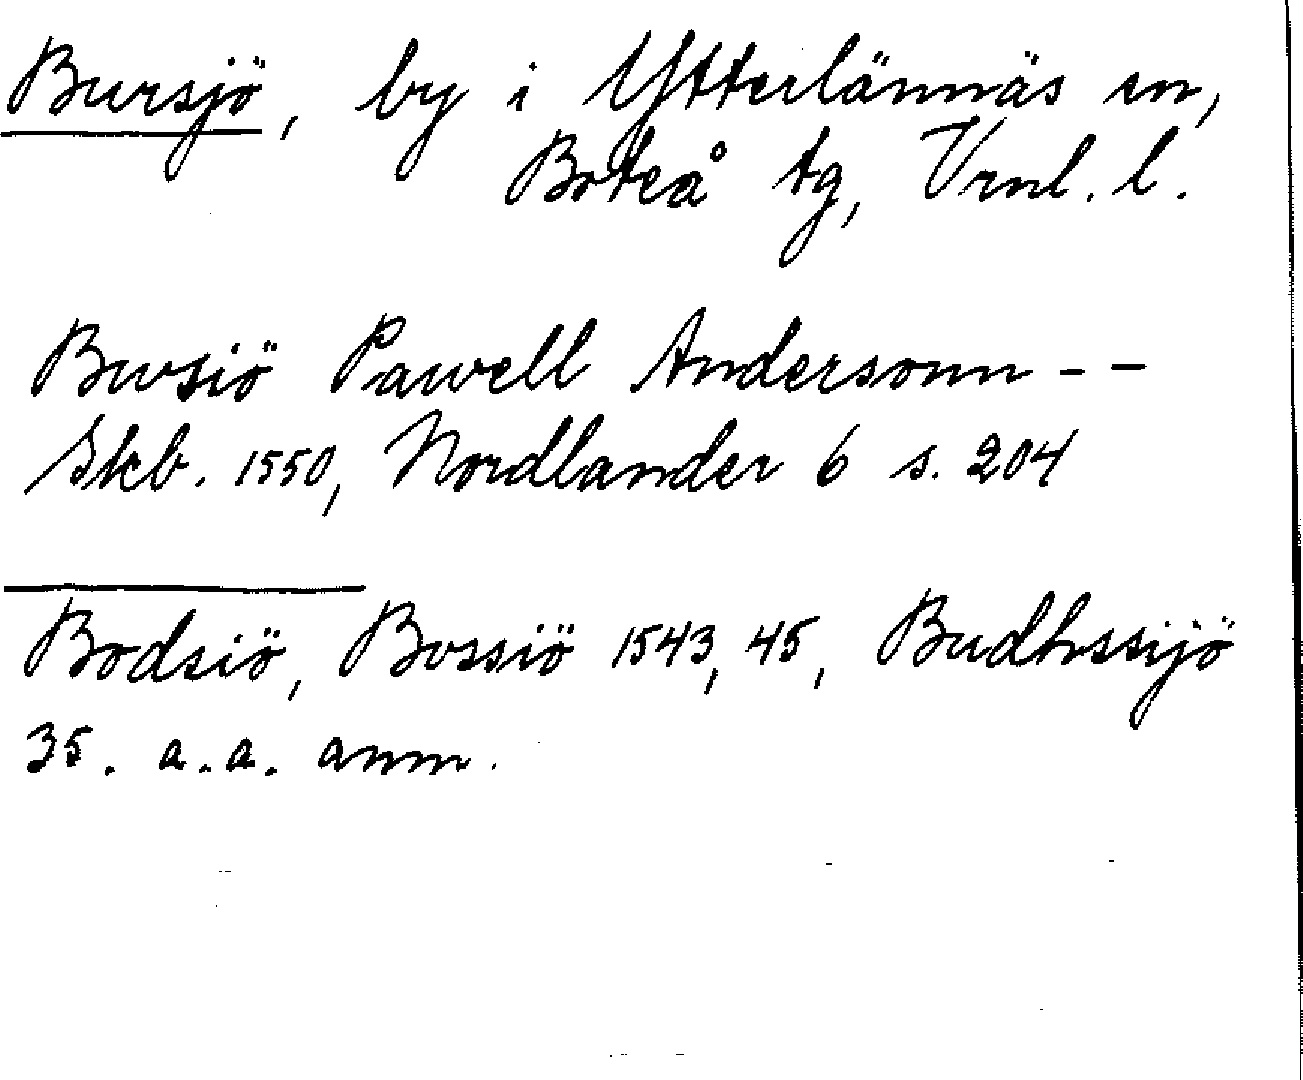 Bursjö, by i Ytterlännäs sn,
Boteå tg, Vrnl. l.
Bwsiö Pawell Andersonn - -
Skb. 1550, Nordlander 6 s. 204
Bodsiö, Bossiö 1543, 45, Budhssijö
35. a.a. anm.